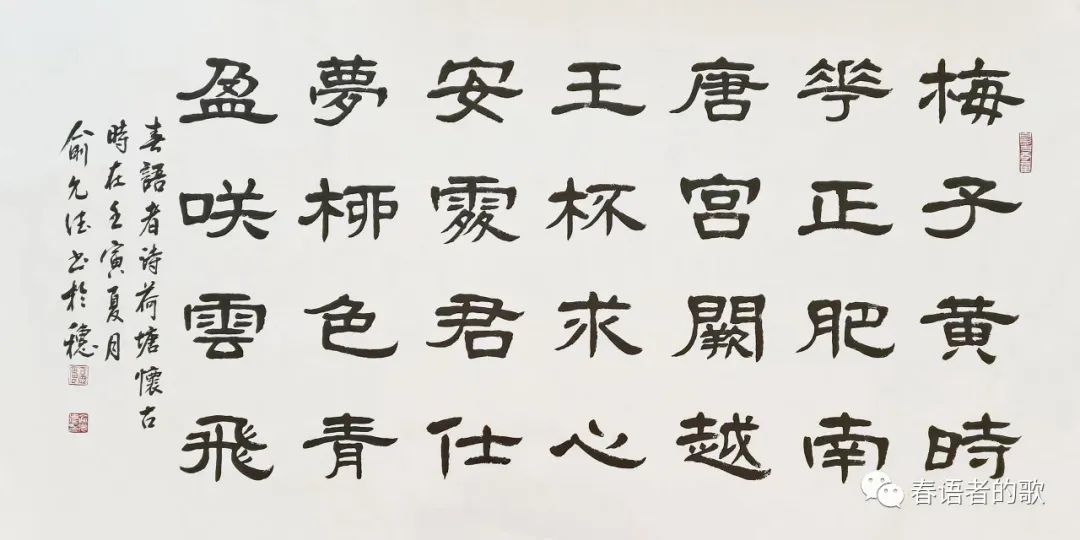 梅子黄時
華正肥南
唐宫闕越
王杯求心
安處君仕
夢柳色青
盈咲雲飛
春語者詩荷塘懷古
時在壬寅夏月
俞允书於穗
春语者的歌